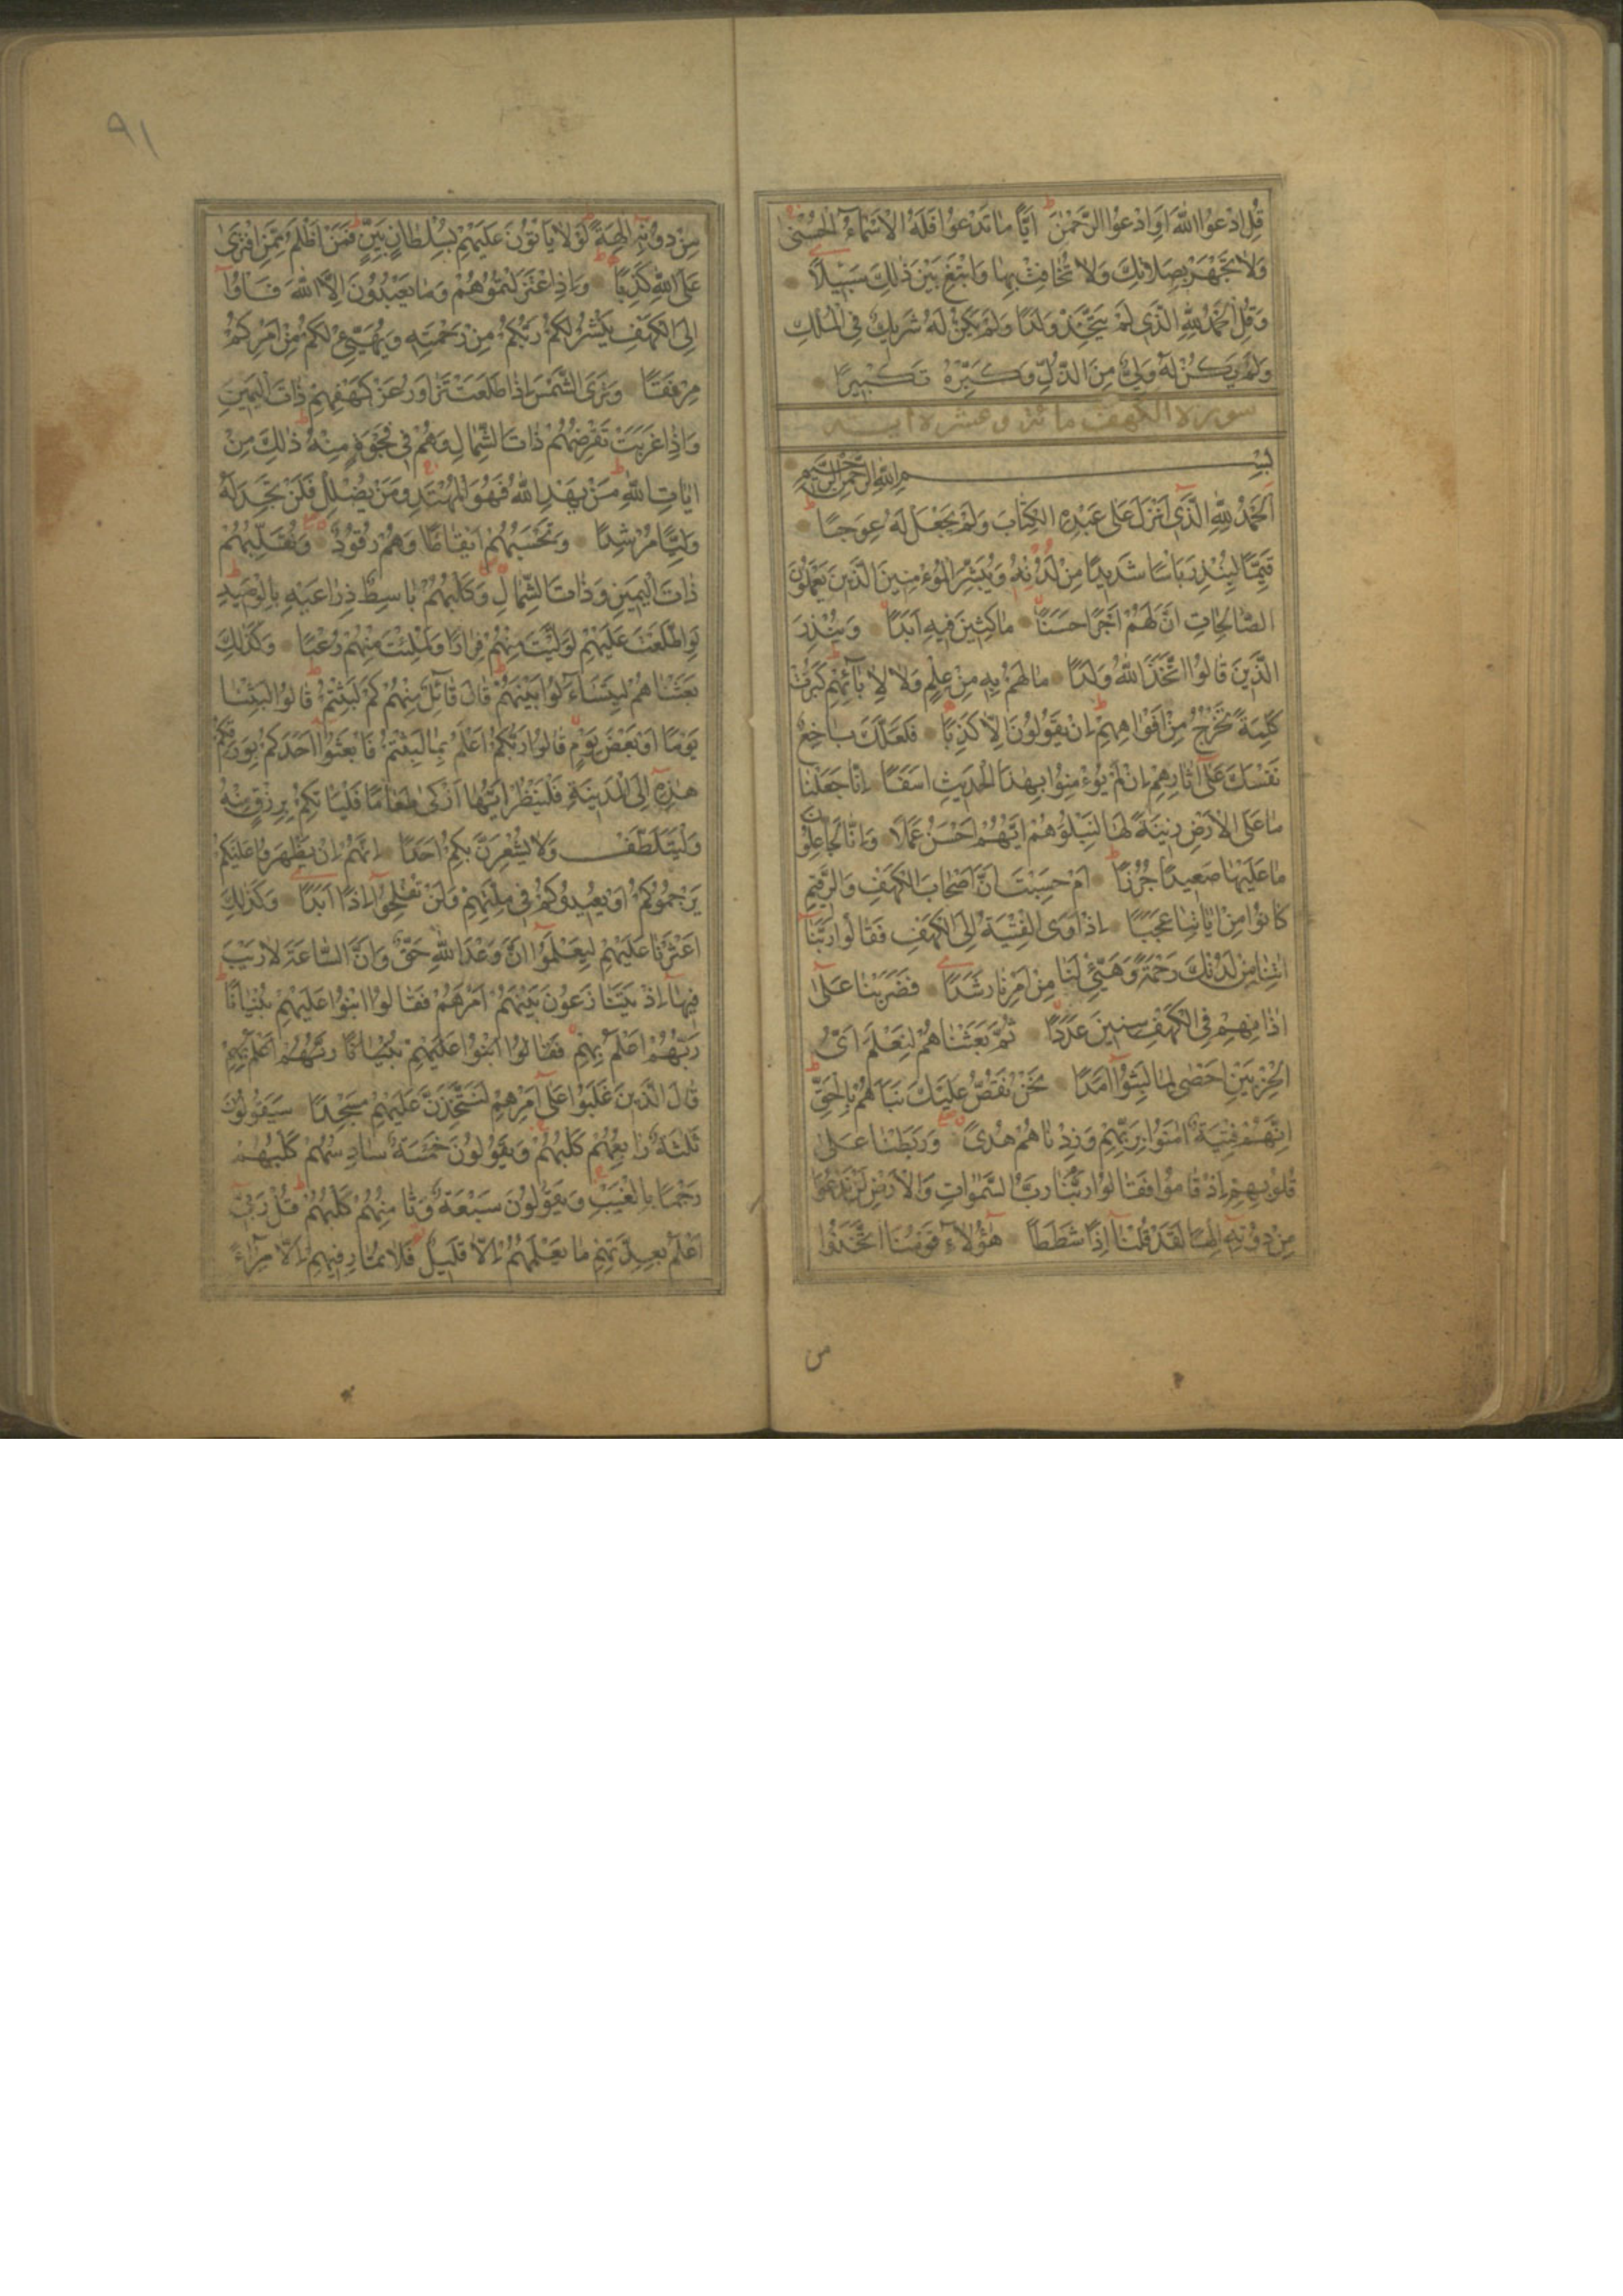 قُلِ ادْعُوا اللّٰهَ اَوِ ادْعُوا الرَّحْمٰنَ اَيًّا مَا تَدْعُوا فَلَهُ الْاَسْمَاءُ الْحُسْنٰى
وَلَا تَجْهَرْ بِصَلَاتِكَ وَلَا تُخَافِتْ بِهَا وَابْتَغِ بَيْنَ ذٰلِكَ سَبِيْلًا
وَقُلِ الْحَمْدُ لِلّٰهِ الَّذِى لَمْ يَتَّخِذْ وَلَدًا وَلَمْ يَكُنْ لَهُ شَرِيكٌ فِى الْمُلْكِ
وَلَمْ يَكُنْ لَهُ وَلِىٌّ مِنَ الذُّلِّ وَكَبِّرْهُ تَكْبِيرًا
سورة الكهف مائة وعشرة اية
بِسْمِ اللّٰهِ الرَّحْمٰنِ الرَّحِيمِ
اَلْحَمْدُ لِلّٰهِ الَّذِى اَنْزَلَ عَلٰى عَبْدِهِ الْكِتَابَ وَلَمْ يَجْعَلْ لَهُ عِوَجًا
قَيِّمًا لِيُنْذِرَ بَاْسًا شَدِيدًا مِنْ لَدُنْهُ وَيُبَشِّرَ الْمُؤْمِنِينَ الَّذِينَ يَعْمَلُونَ
الصَّالِحَاتِ اَنَّ لَهُمْ اَجْرًا حَسَنًا مَاكِثِينَ فِيهِ اَبَدًا وَيُنْذِرَ
الَّذِينَ قَالُوا اتَّخَذَ اللّٰهُ وَلَدًا مَا لَهُمْ بِهِ مِنْ عِلْمٍ وَلَا لِاٰبَائِهِمْ كَبُرَتْ
كَلِمَةً تَخْرُجُ مِنْ اَفْوَاهِهِمْ اِنْ يَقُولُونَ اِلَّا كَذِبًا فَلَعَلَّكَ بَاخِعٌ
نَفْسَكَ عَلٰى اٰثَارِهِمْ اِنْ لَمْ يُؤْمِنُوا بِهٰذَا الْحَدِيثِ اَسَفًا اِنَّا جَعَلْنَا
مَا عَلَى الْاَرْضِ زِينَةً لَهَا لِنَبْلُوَهُمْ اَيُّهُمْ اَحْسَنُ عَمَلًا وَاِنَّا لَجَاعِلُونَ
مَا عَلَيْهَا صَعِيدًا جُرُزًا اَمْ حَسِبْتَ اَنَّ اَصْحَابَ الْكَهْفِ وَالرَّقِيمِ
كَانُوا مِنْ اٰيَاتِنَا عَجَبًا اِذْ اَوَى الْفِتْيَةُ اِلَى الْكَهْفِ فَقَالُوا رَبَّنَا
اٰتِنَا مِنْ لَدُنْكَ رَحْمَةً وَهَيِّئْ لَنَا مِنْ اَمْرِنَا رَشَدًا فَضَرَبْنَا عَلٰى
اٰذَانِهِمْ فِى الْكَهْفِ سِنِينَ عَدَدًا ثُمَّ بَعَثْنَاهُمْ لِنَعْلَمَ اَىُّ
الْحِزْبَيْنِ اَحْصٰى لِمَا لَبِثُوا اَمَدًا نَحْنُ نَقُصُّ عَلَيْكَ نَبَاَهُمْ بِالْحَقِّ
اِنَّهُمْ فِتْيَةٌ اٰمَنُوا بِرَبِّهِمْ وَزِدْنَاهُمْ هُدًى وَرَبَطْنَا عَلٰى
قُلُوبِهِمْ اِذْ قَامُوا فَقَالُوا رَبُّنَا رَبُّ السَّمٰوَاتِ وَالْاَرْضِ لَنْ نَدْعُوَا
مِنْ دُونِهِ اِلٰهًا لَقَدْ قُلْنَا اِذًا شَطَطًا هٰؤُلَاءِ قَوْمُنَا اتَّخَذُوا
من
٩١
مِنْ دُونِهِ اٰلِهَةً لَوْلَا يَاْتُونَ عَلَيْهِمْ بِسُلْطَانٍ بَيِّنٍ فَمَنْ اَظْلَمُ مِمَّنِ افْتَرٰى
عَلَى اللّٰهِ كَذِبًا وَاِذِ اعْتَزَلْتُمُوهُمْ وَمَا يَعْبُدُونَ اِلَّا اللّٰهَ فَاْوُا
اِلَى الْكَهْفِ يَنْشُرْ لَكُمْ رَبُّكُمْ مِنْ رَحْمَتِهِ وَيُهَيِّئْ لَكُمْ مِنْ اَمْرِكُمْ
مِرْفَقًا وَتَرَى الشَّمْسَ اِذَا طَلَعَتْ تَزَاوَرُ عَنْ كَهْفِهِمْ ذَاتَ الْيَمِينِ
وَاِذَا غَرَبَتْ تَقْرِضُهُمْ ذَاتَ الشِّمَالِ وَهُمْ فِى فَجْوَةٍ مِنْهُ ذٰلِكَ مِنْ
اٰيَاتِ اللّٰهِ مَنْ يَهْدِ اللّٰهُ فَهُوَ الْمُهْتَدِ وَمَنْ يُضْلِلْ فَلَنْ تَجِدَ لَهُ
وَلِيًّا مُرْشِدًا وَتَحْسَبُهُمْ اَيْقَاظًا وَهُمْ رُقُودٌ وَنُقَلِّبُهُمْ
ذَاتَ الْيَمِينِ وَذَاتَ الشِّمَالِ وَكَلْبُهُمْ بَاسِطٌ ذِرَاعَيْهِ بِالْوَصِيدِ
لَوِ اطَّلَعْتَ عَلَيْهِمْ لَوَلَّيْتَ مِنْهُمْ فِرَارًا وَلَمُلِئْتَ مِنْهُمْ رُعْبًا وَكَذٰلِكَ
بَعَثْنَاهُمْ لِيَتَسَاءَلُوا بَيْنَهُمْ قَالَ قَائِلٌ مِنْهُمْ كَمْ لَبِثْتُمْ قَالُوا لَبِثْنَا
يَوْمًا اَوْ بَعْضَ يَوْمٍ قَالُوا رَبُّكُمْ اَعْلَمُ بِمَا لَبِثْتُمْ فَابْعَثُوا اَحَدَكُمْ بِوَرِقِكُمْ
هٰذِهِ اِلَى الْمَدِينَةِ فَلْيَنْظُرْ اَيُّهَا اَزْكٰى طَعَامًا فَلْيَاْتِكُمْ بِرِزْقٍ مِنْهُ
وَلْيَتَلَطَّفْ وَلَا يُشْعِرَنَّ بِكُمْ اَحَدًا اِنَّهُمْ اِنْ يَظْهَرُوا عَلَيْكُمْ
يَرْجُمُوكُمْ اَوْ يُعِيدُوكُمْ فِى مِلَّتِهِمْ وَلَنْ تُفْلِحُوا اِذًا اَبَدًا وَكَذٰلِكَ
اَعْثَرْنَا عَلَيْهِمْ لِيَعْلَمُوا اَنَّ وَعْدَ اللّٰهِ حَقٌّ وَاَنَّ السَّاعَةَ لَا رَيْبَ
فِيهَا اِذْ يَتَنَازَعُونَ بَيْنَهُمْ اَمْرَهُمْ فَقَالُوا ابْنُوا عَلَيْهِمْ بُنْيَانًا
رَبُّهُمْ اَعْلَمُ بِهِمْ فَقَالُوا ابْنُوا عَلَيْهِمْ بُنْيَانًا رَبُّهُمْ اَعْلَمُ بِهِمْ
قَالَ الَّذِينَ غَلَبُوا عَلٰى اَمْرِهِمْ لَنَتَّخِذَنَّ عَلَيْهِمْ مَسْجِدًا سَيَقُولُونَ
ثَلٰثَةٌ رَابِعُهُمْ كَلْبُهُمْ وَيَقُولُونَ خَمْسَةٌ سَادِسُهُمْ كَلْبُهُمْ
رَجْمًا بِالْغَيْبِ وَيَقُولُونَ سَبْعَةٌ وَثَامِنُهُمْ كَلْبُهُمْ قُلْ رَبِّى
اَعْلَمُ بِعِدَّتِهِمْ مَا يَعْلَمُهُمْ اِلَّا قَلِيلٌ فَلَا تُمَارِ فِيهِمْ اِلَّا مِرَاءً